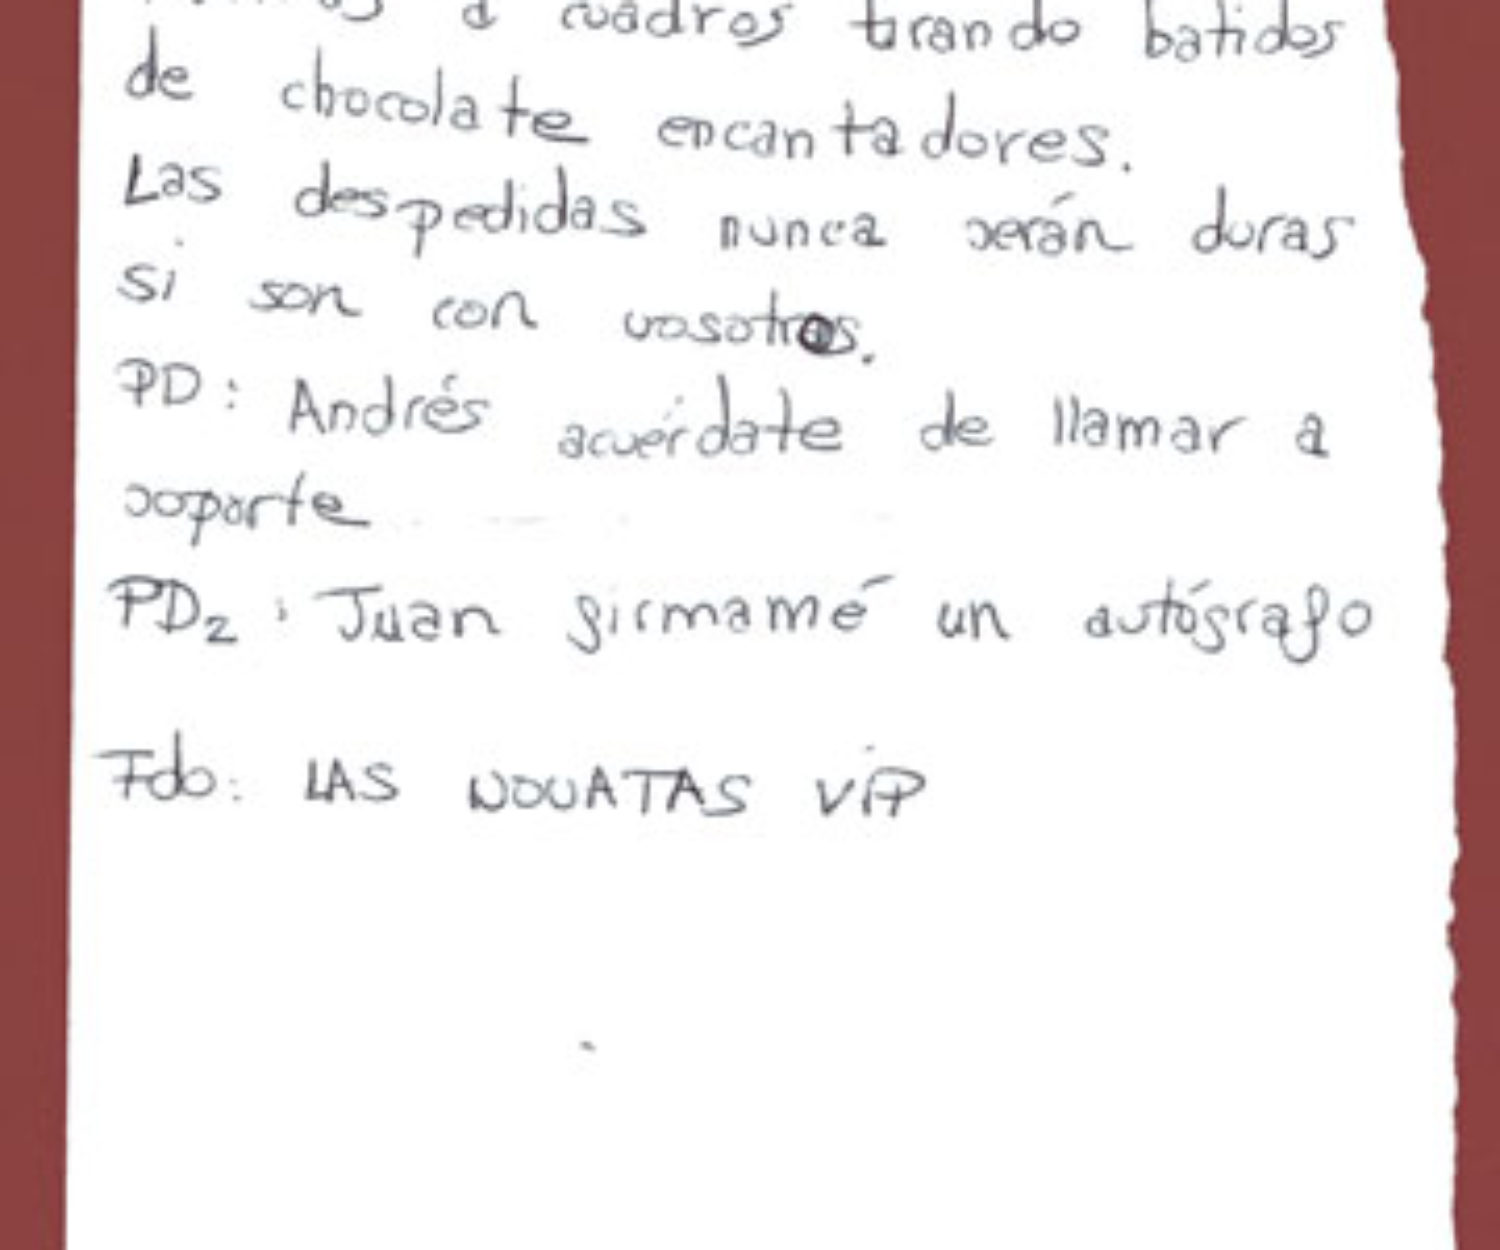 a cuadros tirando batidos
de chocolate encantadores.
Las despedidas nunca serán duras
si son con vosotros.
PD: Andrés acuérdate de llamar a
soporte
PD2: Juan firmamé un autógrafo
Fdo: LAS NOVATAS ViP